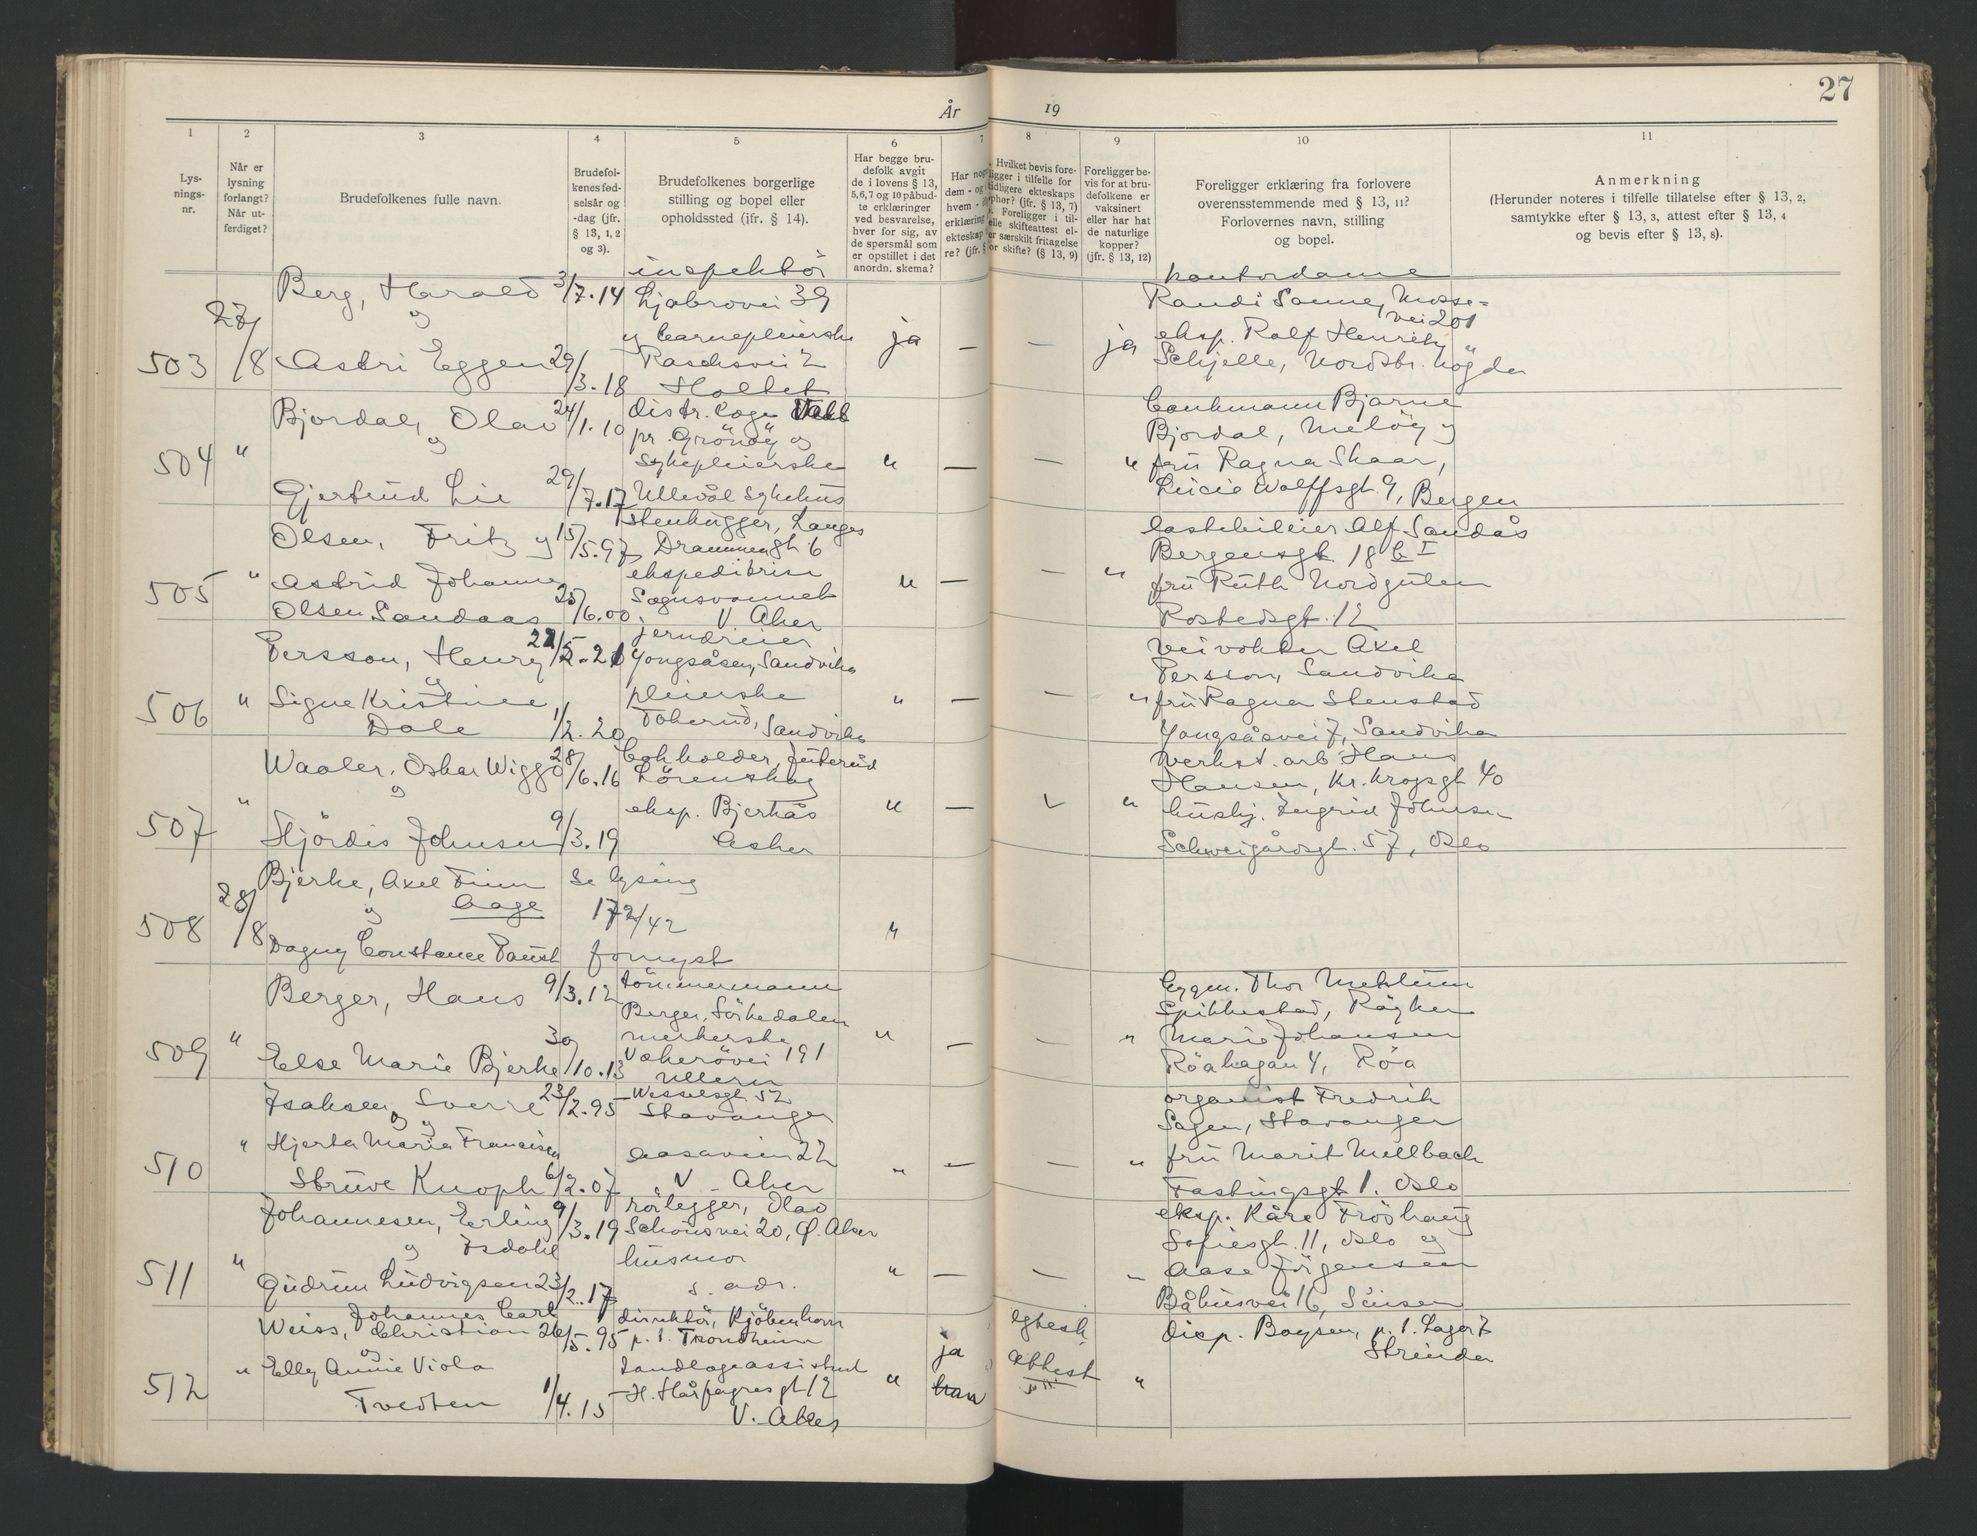 År 19
27
1 2 3 4 5 6 7 8 9 10 11
Lys-
nings-
nr.
Når er
lysning
forlangt?
Når ut-
ferdiget?
Brudefolkenes fulle navn.
Brudefol-
kenes fød-
selsår og
-dag (jfr.
§ 13, 1, 2
og 3).
Brudefolkenes borgerlige
stilling og bopel eller
opholdssted (ifr. § 14).
Har begge bru-
defolk avgit
de i lovens § 13,
5,6,7 og 10 påbud-
te erklæringer
ved besvarelse,
hver for sig, av
de spørsmål som
er opstillet i det
anordn. skema?
Har nog
dem - og
hvem -
erklæring
ekteskap
re? (jfr. §
Hvilket bevis fore-
ligger i tilfelle for
tidligere ekteskaps
ophør? (jfr. § 13, 7)
Foreligger i til-
elle skifteattest el-
er særskilt fritagelse
or skifte? (§ 13, 9)
Foreligger be-
vis for at bru-
defolkene er
vaksinert
eller har hat
de naturlige
kopper?
(jfr. § 13, 12)
Foreligger erklæring fra forlovere
overensstemmende med § 13, 11?
Forlovernes navn, stilling
og bopel.
Anmerkning
(Herunder noteres i tilfelle tillatelse efter § 13, 2,
samtykke efter § 13, 3, attest efter § 13, 4
og bevis efter § 13, 8).
503 27/8
Berg, Harald 3/7.14
og
Astri Eggen 29/3.18
inspektör
Ljabrovei 39
og barnepleierske
Raschsvei 2
Holtet
ja — — ja
kontordame
Randi Sanne, Mosse-
vei 201
eksp. Rolf Henrik
Schjelle, Nordstr. högda
504 "
Bjordal, Olav 24/1.10
og
Gjertrud Lie 29/7.17
distr. læge
pr. Gröndy og
Sykepleierske
Ullevål Sykehus
" — — "
Bankmann Bjarne
Bjordal, Melöy og
fru Ragna Skaar,
Lucie Wolffsgt. 9, Bergen
505 "
Olsen, Fritz og 15/5.97
Astrid Johanne
Olsen Sandaas 25/6.00
Stenhugger, Langes
Drammengt. 6
ekspeditrise
Sognsvannet
V. Aker
" — — "
lastebileier Alf Sandås
Bergensgt. 18 b I
fru Ruth Nordgulen
Rostedsgt. 12
506 "
Persson, Henry 22/5.21
og
Signe Kristine
Dale 1/2.20
jerndreier
Yongsåsen, Sandvika
pleierske
Tokerud, Sandvika
" — — "
Veivokter Axel
Persson, Sandvika
fru Ragna Stenstad
Yongsåsvei 7, Sandvika
507 "
Waaler, Oskar Wiggo 28/6.16
og
Hjördis Johnsen 9/3.19
bokholder,
Lörenskog
eksp. Bjerkås
Asker
" — — "
Verkst. arb. Hans
Hansen, Kr. Krogsgt. 40
husbj. Ingrid Johnsen
Schweigårdsgt. 57, Oslo
508 28/8
Bjerke, Axel Finn
og Aage
Dagny Constance Faust
Se lysing
172/42
fornyet
"
509 "
Berger, Hans 9/3.12
Else Marie Bjerke 30/10.13
tömmermann
Berger, Sörkedalen
merkerske
Vækerövei 191
Ullern
" — — "
byggm. Thor Mehlum
Spikkestad, Röyken
Marie Johansen
Röahagan 4, Röa
510 "
Isaksen, Sverre 23/2.95
og
Hjerta Maria Francisca
Strüve Knoph 6/2.07
Wesselsgt. 52
Stavanger
Aasaveien 22
V. Aker
" — — "
organist Fredrik
Sagen, Stavanger
fru Marit Mellbach
Fastingsgt 1. Oslo
511 "
Johannesen, Erling 9/3.19
og Isdahl
Gudrun Ludvigsen 23/2.17
rörlegger, Olav
Schousvei 20, Ø. Aker
husmor
s. adr.
" — — "
eksp. Kåre Fröshaug
Sofiesgt. 11, Oslo og
Aase Jörgensen
Båhusvei 16, Sinsen
512 "
Weiss, Johannes Carl
Christian 26/5.95
og
Elly Annie Viola
Tvedten 1/4.15
direktör, Kjöbenhavn
p. t. Trondheim
tandlægeassistent
H. Hårfagresgt 12
V. Aker
" ja
han
attest
"
disp. Boysen, p. t. Lager 7
Strinda